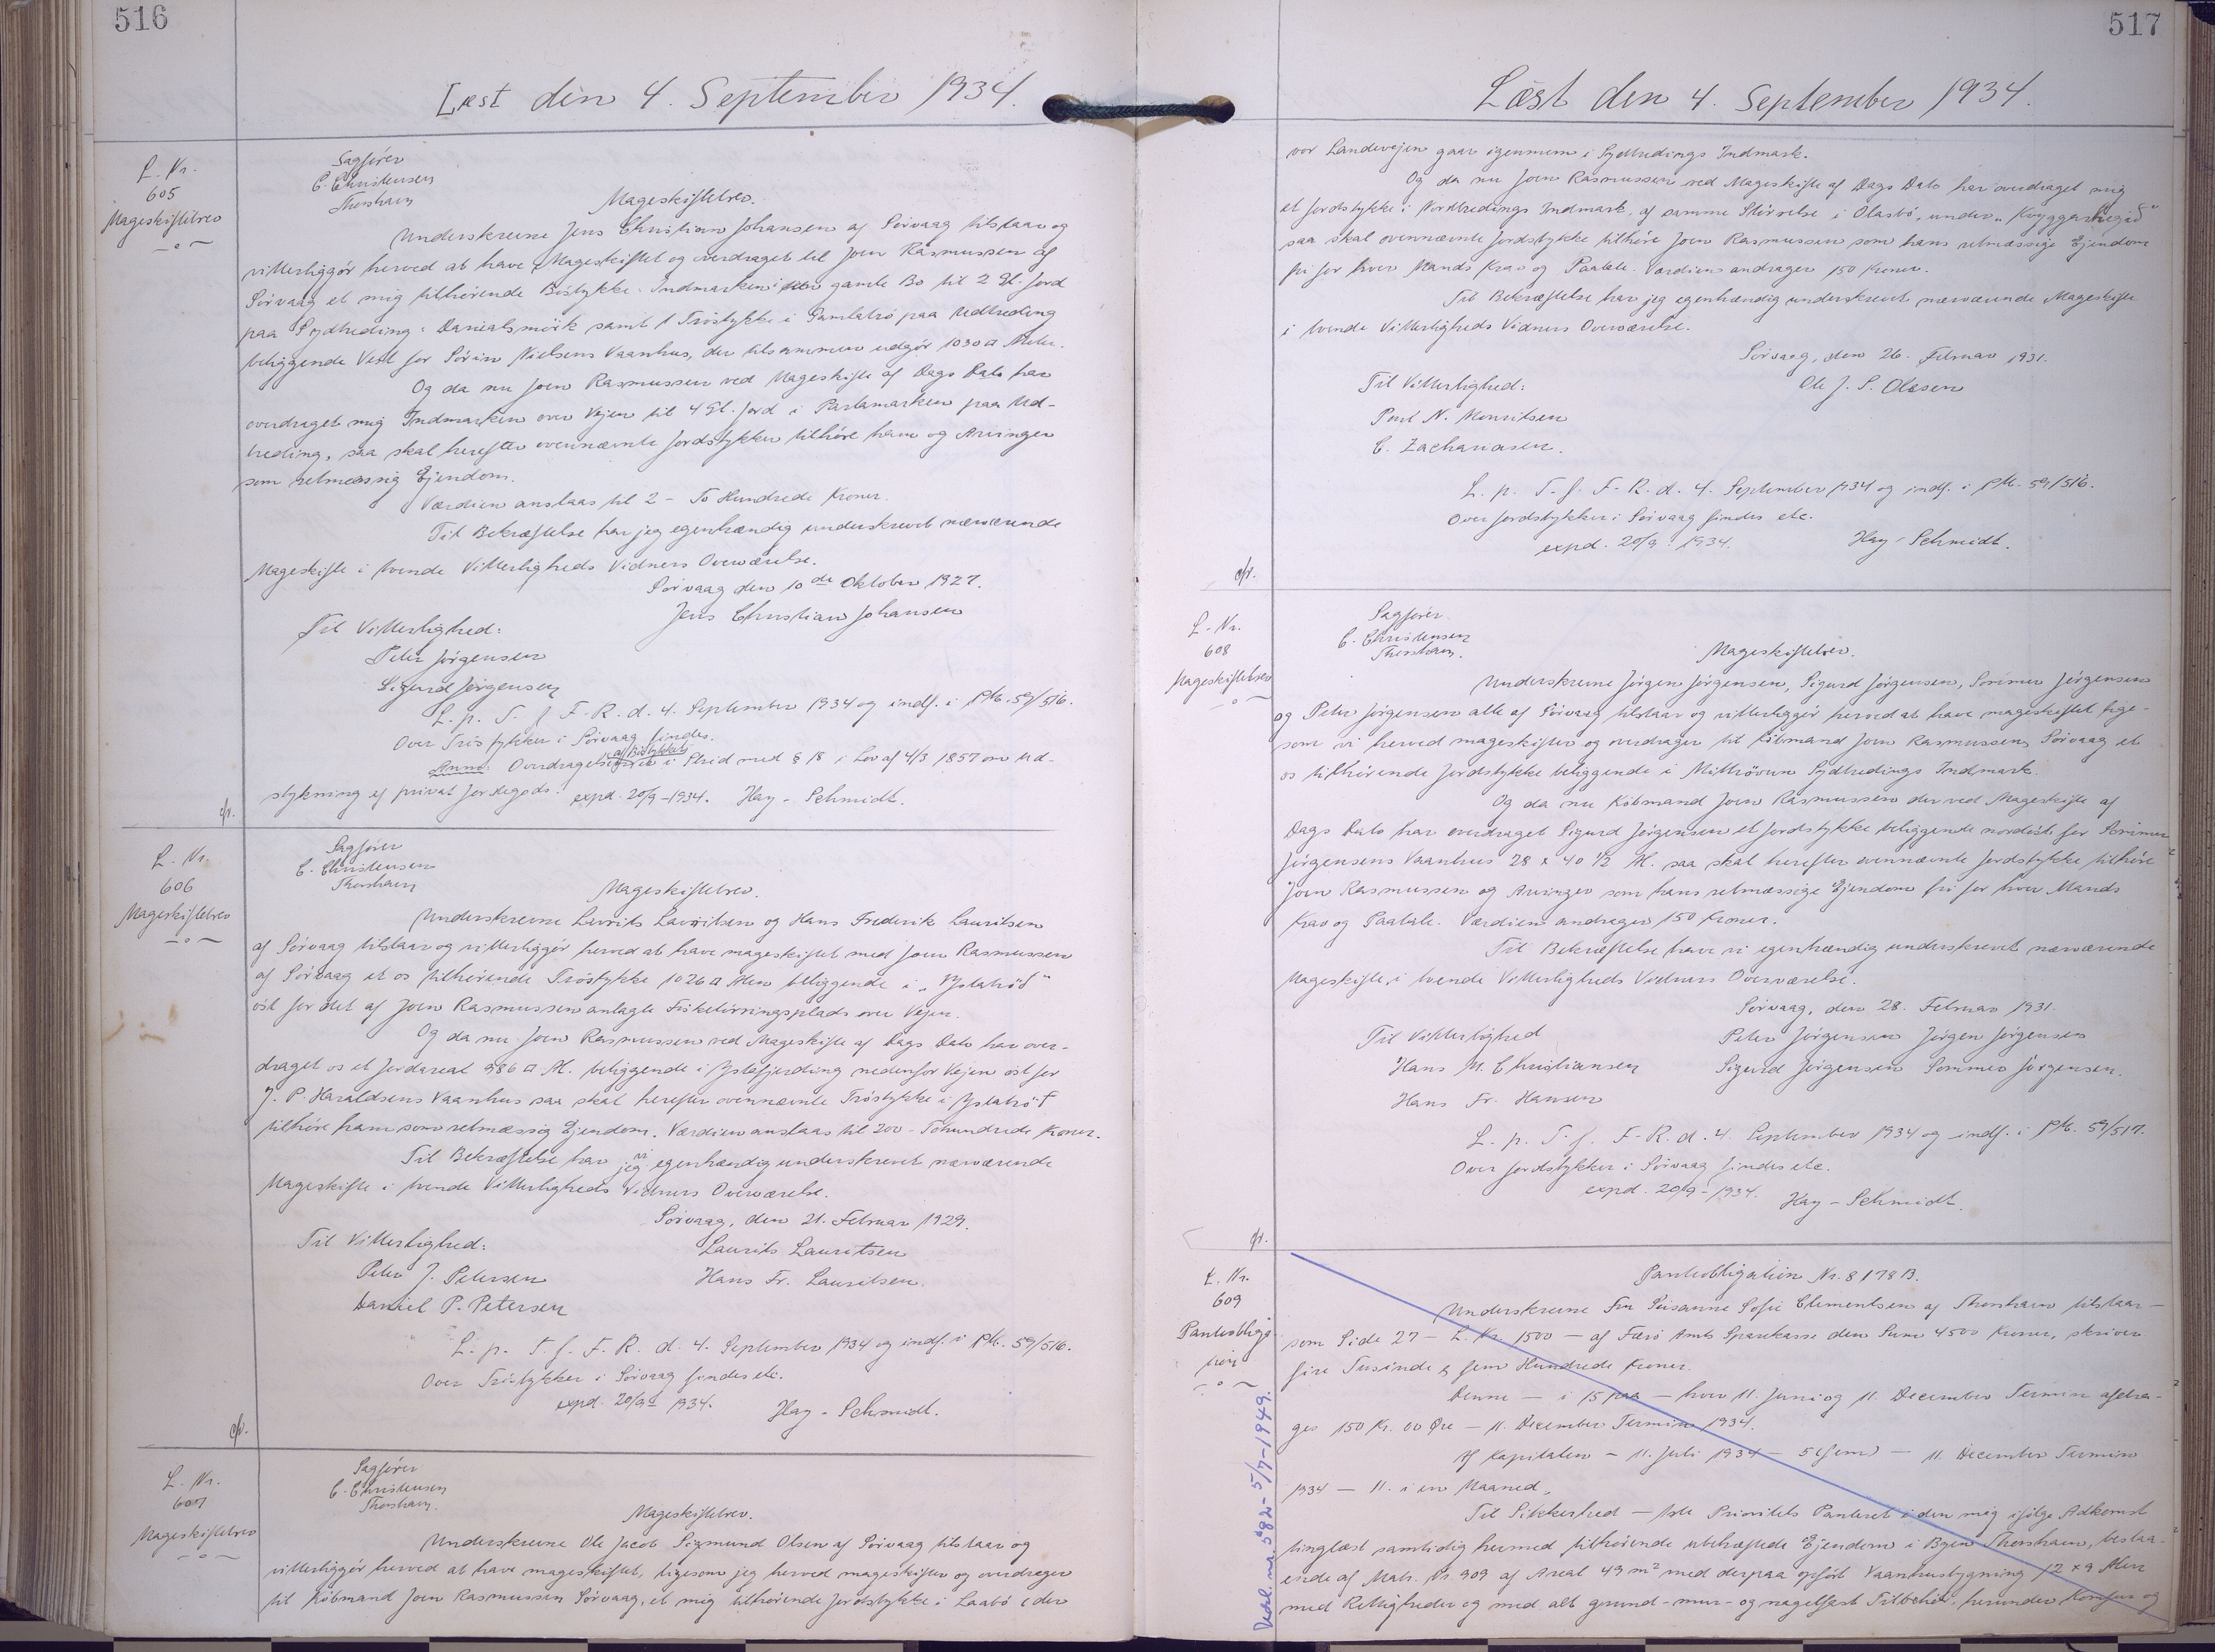 516
Læst den 4. September 1934.
L. Nr.
605
Mageskiftebrev
Sagfører
C. Christensen
Thorshavn
Mageskiftebrev.
Underskrevne Jens Christian Johansen af Sörvaag tilstaar og
vitterliggör herved at have Mageskiftet og överdraget til Joen Rasmussen af
Sörvaag et mig tilhörende Böstykke i Indmarken i gamle Bö til 2 Gl. Jord
paa Sydtreding i Danialsmörk samt 1 Tröstykke i Gamlatrö paa Udtreding
beliggende Vest for Sörin Nielsens Vaanhus, der tilsammen udgör 1030 □ Alen.
Og da nu Joen Rasmussen ved Mageskifte af Dags Dato har
overdraget mig Indmarken over Vejen til 4 Gl. Jord i Partamarken paa Ud-
treding, saa skal herefter ovennævnte Jordstykker tilhöre ham og Arvinger
som retmæssig Ejendom.
Værdien anslaas til 2 - To Hundrede Kroner.
Til Bekræftelse har jeg egenhændig underskrevet nærværende
Mageskifte i tvende Vitterligheds Vidners Overværelse.
Sörvaag den 10de Oktober 1927.
Jens Christian Johansen
Til Vitterlighed:
Peter Jörgensen
Sigurd Jörgensen
L. p. T. f. F. R. d. 4. September 1934 og indf. i PM. 59/516.
Over Tröstykker i Sörvaag findes.
af Böstykket
Anm: Overdragelsen i Strid med § 18 i Lov af 4/3 1857 om Ud-
stykning af privat Jordegods. expd. 20/9-1934. Hay-Schmidt.
cfr.
L. Nr.
606
Mageskiftebrev
Sagfører
C. Christensen
Thorshavn
Mageskiftebrev.
Underskrevne Laurits Lauritsen og Hans Frederik Lauritsen
af Sörvaag tilstaar og vitterliggör herved at have mageskiftet med Joen Rasmussen
af Sörvaag et os tilhörende Tröstykke 1026 □ Alen beliggende i "Ystatrö"
öst for det af Joen Rasmussen anlagte Fisketörringsplads over Vejen.
Og da nu Joen Rasmussen ved Mageskifte af Dags Dato har over-
draget os et Jordareal 986 □ Al. beliggende i Ystafjerding nedenfor Vejen öst for
J. P. Haraldsens Vaanhus saa skal herefter ovennævnte Tröstykke i Ystatröð
tilhöre ham som retmæssig Ejendom. Værdien anslaas til 200 - Tohundrede Kroner.
Til Bekræftelse har jeg vi egenhændig underskrevet nærværende
Mageskifte i tvende Vitterligheds Vidners Overværelse.
Sörvaag, den 21. Februar 1929.
Til Vitterlighed:
Laurits Lauritsen
Peter J. Petersen
Hans Fr. Lauritsen.
Daniel P. Petersen
L. p. T. f. F. R. d. 4. September 1934 og indf. i PM. 59/516.
Over Tröstykker i Sörvaag findes etc.
expd. 20/9 1934. Hay-Schmidt.
cfr.
L. Nr.
607
Mageskiftebrev
Sagfører
C. Christensen
Thorshavn.
Mageskiftebrev.
Underskrevne Ole Jacob Sigmund Olsen af Sörvaag tilstaar og
vitterliggör herved at have mageskiftet, ligesom jeg herved mageskifter og overdrager
til Köbmand Joen Rasmussen Sörvaag, et mig tilhörende Jordstykke i Laabö (der
517
Læst den 4. September 1934.
vor Landevejen gaar igennem i Sydtredings Indmark.
Og da nu Joen Rasmussen ved Mageskifte af Dags Dato har overdraget mig
et Jordstykke i Nordtredings Indmark, af samme Störrelse i Olasbö, under "Kvyggarhegið"
saa skal ovennævnte Jordstykke tilhöre Joen Rasmussen som hans retmæssige Ejendom
fri for hver Mands Krav og Paatale. Værdien andrager 150 Kroner.
Til Bekræftelse har jeg egenhændig underskrevet nærværende Mageskifte
i tvende Vitterligheds Vidners Overværelse.
Sörvaag, den 26. Februar 1931.
Til Vitterlighed:
Ole J. S. Olesen
Poul N. Mouritsen
C. Zachariasen.
L. p. T. f. F. R. d. 4. September 1934 og indf. i PM. 59/516.
Over Jordstykker i Sörvaag findes etc.
expd. 20/9 1934. Hay-Schmidt.
cfr.
L. Nr.
608
Mageskiftebrev
Sagfører
C. Christensen
Thorshavn.
Mageskiftebrev.
Underskrevne Jörgen Jörgensen, Sigurd Jörgensen, Sörimer Jörgensen
og Peter Jörgensen alle af Sörvaag tilstaar og vitterliggör herved at have mageskiftet lige-
som vi herved mageskifter og overdrager til Köbmand Joen Rasmussen, Sörvaag et
os tilhörende Jordstykke beliggende i Sydtredings Indmark.
Og da nu Köbmand Joen Rasmussen der ved Mageskifte af
Dags Dato har overdraget Sigurd Jörgensen et Jordstykke beliggende nordöst for
Jörgensens Vaanhus 28 x 40 1/2 Al. saa skal herefter ovennævnte Jordstykke tilhöre
Joen Rasmussen og Arvinger som hans retmæssige Ejendom fri for hver Mands
Krav og Paatale. Værdien andrager 150 Kroner.
Til Bekræftelse have vi egenhændig underskrevet nærværende
Mageskifte, i tvende Vitterligheds Vidners Overværelse.
Sörvaag, den 28. Februar 1931.
Til Vitterlighed
Peter Jörgensen Jörgen Jörgensen
Hans M. Christiansen
Sigurd Jörgensen Sommer Jörgensen.
Hans Fr. Hansen
L. p. T. f. F. R. d. 4. September 1934 og indf. i PM. 59/517.
Over Jordstykker i Sörvaag findes etc.
expd. 20/9-1934. Hay-Schmidt.
cfr.
L. Nr.
609
Panteobliga
tion
Panteobligation Nr. 8178 B.
Underskrevne Fru Susanne Sofie Clementsen af Thorshavn tilstaar —
som Side 27 — L. Nr. 1500 — af Færö Amts Sparekasse den Sum 4500 Kroner, skriver
fire Tusinde & fem Hundrede Kroner.
Denne — i 15 paa — hver 11. Juni og 11. December Termin afdra-
ges 150 Kr. 00 Øre — 11. December Termin 1934.
Af Kapitalen — 11. Juli 1934 — 5 (fem) — 11. December Termin
1934 — 11. i en Maaned,
Til Sikkerhed — 1ste Prioritets Panteret i den mig ifölge Adkomst
tinglæst samtidig hermed tilhörende ubehæftede Ejendom i Byen Thorshavn, bestaa-
ende af Matr. Nr. 909 af Areal 49 m² med derpaa opfört Vaanhusbygning 12 x 9 Alen
med Rettigheder og med alt grund-mur- og nagelfast Tilbehör, herunder Komfur og
5/7-1949.